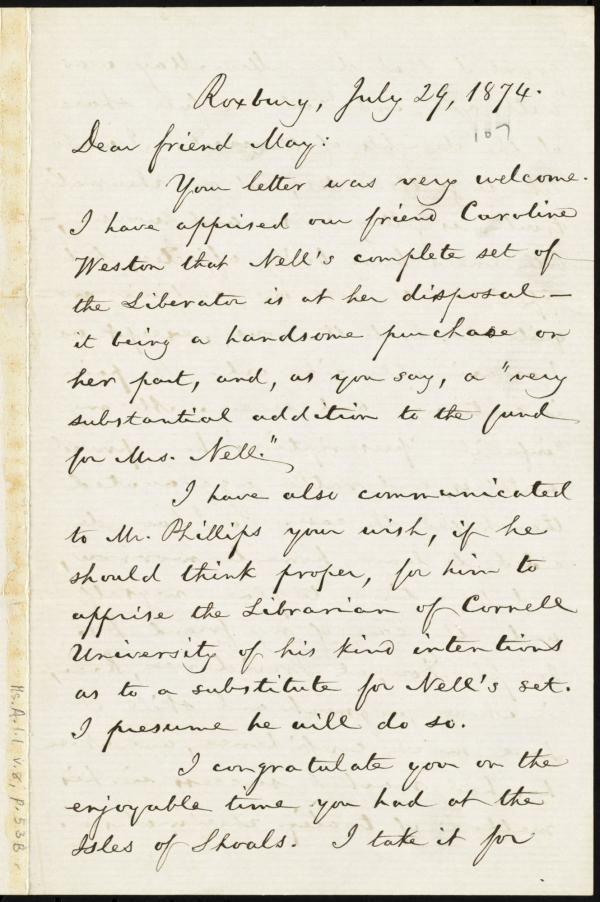 Roxbury, July 29, 1874.
107
Dear friend May:
Your letter was very welcome.
I have apprised our friend Caroline
Weston that Nell's complete set of
the Liberator is at her disposal —
it being a handsome purchase on
her part, and, as you say, a "very
substantial addition to the fund
for Mrs. Nell."
I have also communicated
to Mr. Phillips your wish, if he
should think proper, for him to
apprise the Librarian of Cornell
University of his kind intentions
as to a substitute for Nell's set.
I presume he will do so.
I congratulate you on the
enjoyable time you had at the
Isles of Shoals. I take it for
Ms. A. 1.1 v. 8, p. 53B